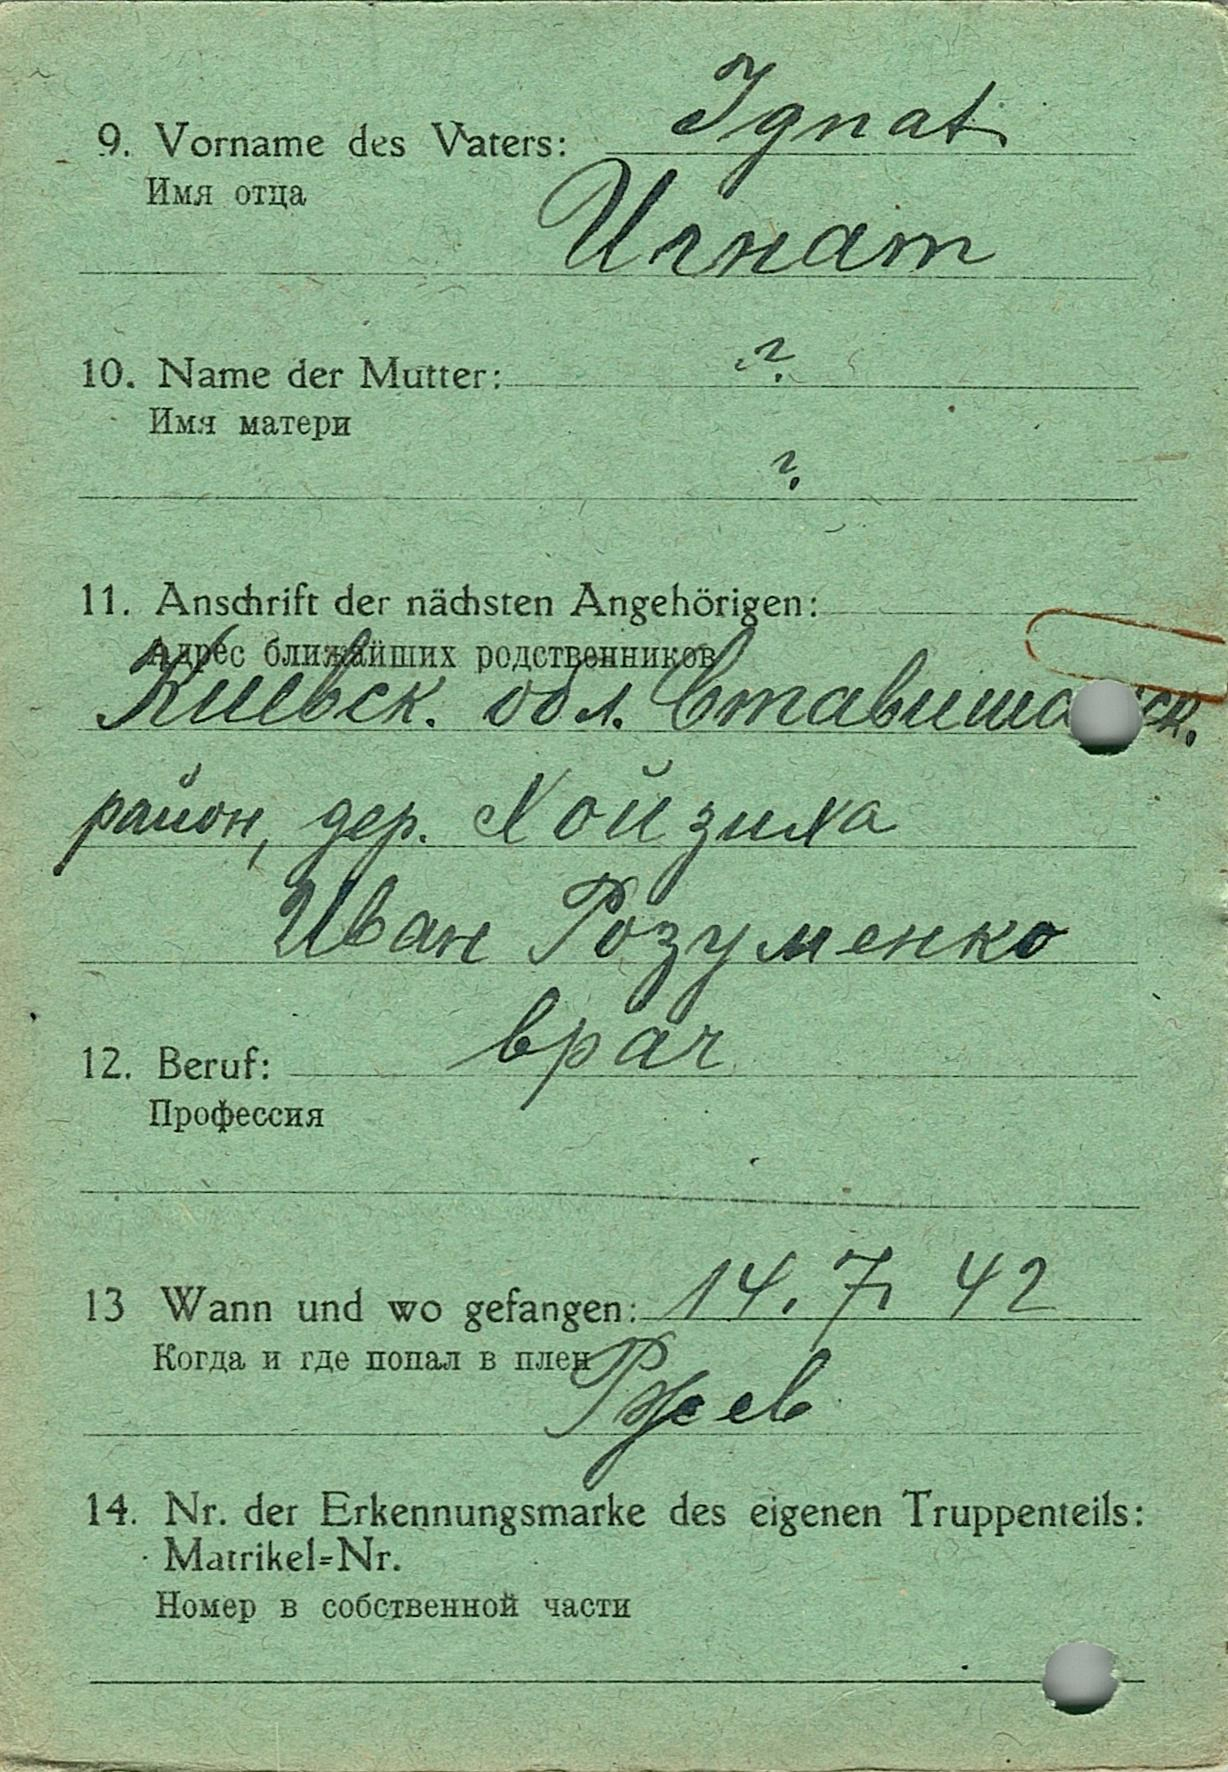 9. Vorname des Vaters: Ignat
Имя отца
Игнат
10. Name der Mutter: ?
Имя матери
?
11. Anschrift der nächsten Angehörigen:
Адрес ближайших родственников
Киевск. обл.
район, дер. Хойзиха
Иван Розуменко
12. Beruf: врач
Профессия
13 Wann und wo gefangen: 14. 7. 42
Когда и где попал в плен
Ржев
14. Nr. der Erkennungsmarke des eigenen Truppenteils:
Matrikel=Nr.
Номер в собственной части